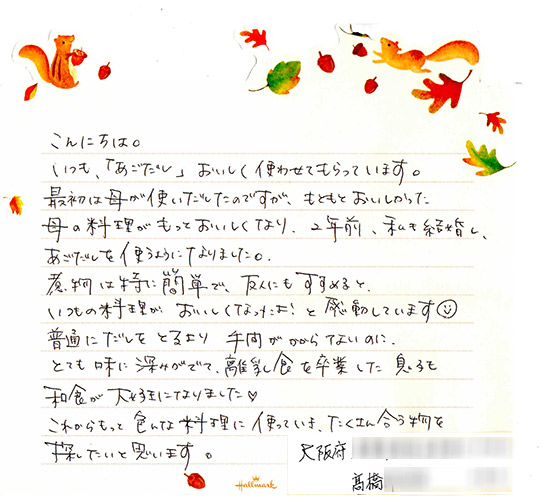 こんにちは。
いつも、「あごだし」おいしく使わせてもらっています。
最初は母が使いだしたのですが、もともとおいしかった
母の料理がもっとおいしくなり、2年前、私も結婚し、
あごだしを使うようになりました。
煮物は特に簡単で、友人にもすすめると、
いつもの料理がおいしくなった!と感動しています
普通にだしをとるより手間がかからないのに、
とても味に深みがでて、離乳食を卒業した息子も
和食が大好きになりました♡
これからもっと色んな料理に使っていき、たくさん合う物を
探したいと思います。
大阪府
高橋
Hallmark